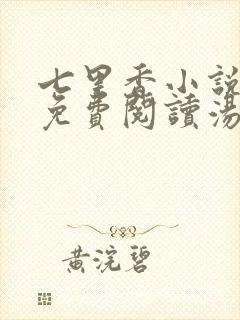 七里香小說
免費閱讀湯
黃浣碧